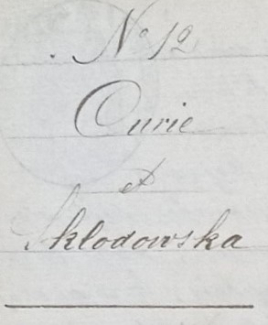 N° 12
Curie
et
Sklodowska